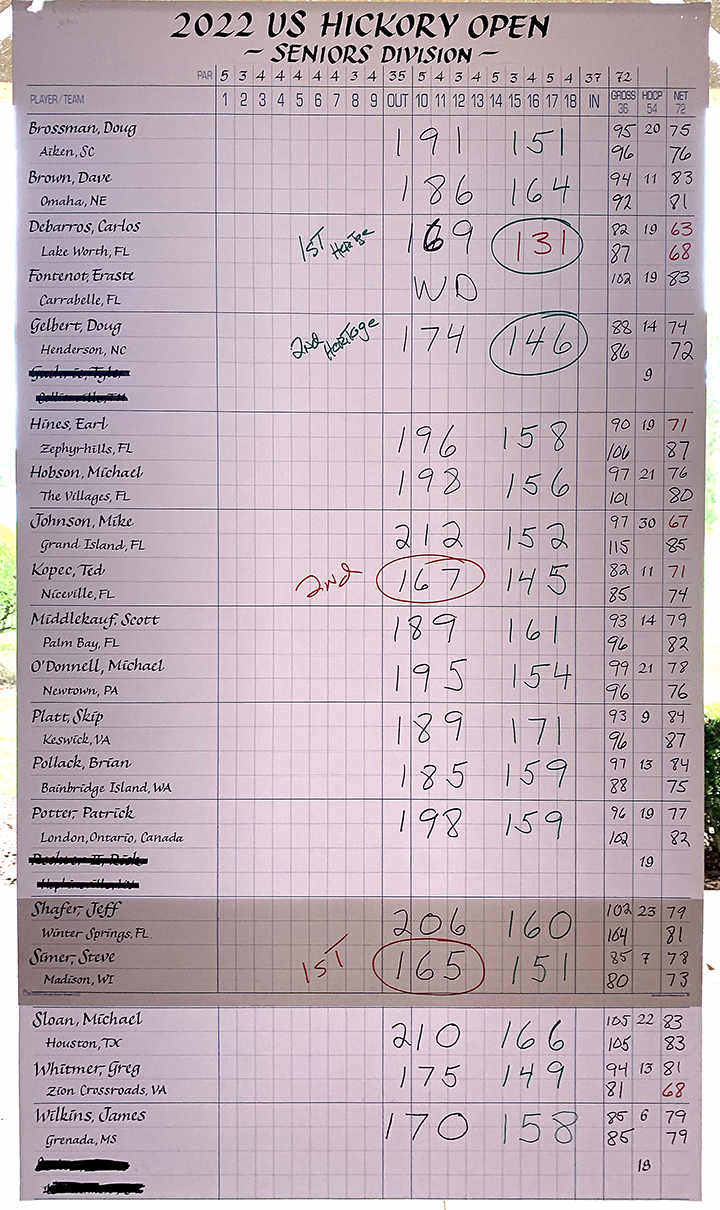 2022 US HICKORY OPEN
~ SENIORS DIVISION ~
PAR 5 3 4 4 4 4 4 3 4 35 5 4 3 4 5 3 4 5 4 37 72
PLAYER/TEAM 1 2 3 4 5 6 7 8 9 OUT 10 11 12 13 14 15 16 17 18 IN GROSS 36 HDCP 54 NET 72
Brossman, Doug 191 151 95 20 75
Aiken, SC 96 76
Brown, Dave 186 164 94 11 83
Omaha, NE 92 81
Debarros, Carlos 1ST HERTGE 169 131 82 19 63
Lake Worth, FL 87 68
Fontenot, Eraste WD 102 19 83
Carrabelle, FL
Gelbert, Doug 2nd HERITOGE 174 146 88 14 74
Henderson, NC 86 72
9
Hines, Earl 196 158 90 19 71
Zephyrhills, FL 106 87
Hobson, Michael 198 156 97 21 76
The Villages, FL 101 80
Johnson, Mike 212 152 97 30 67
Grand Island, FL 115 85
Kopec, Ted 2nd 167 145 82 11 71
Niceville, FL 85 74
Middlekauf, Scott 189 161 93 14 79
Palm Bay, FL 96 82
O'Donnell, Michael 195 154 99 21 78
Newtown, PA 96 76
Platt, Skip 189 171 93 9 84
Keswick, VA 96 87
Pollack, Brian 185 159 97 13 84
Bainbridge Island, WA 88 75
Potter, Patrick 198 159 96 19 77
London, Ontario, Canada 102 82
19
Shafer, Jeff 206 160 102 23 79
Winter Springs, FL 104 81
Simer, Steve 1ST 165 151 85 7 78
Madison, WI 80 73
Sloan, Michael 210 166 105 22 83
Houston, TX 105 83
Whitmer, Greg 175 149 94 13 81
Zion Crossroads, VA 81 68
Wilkins, James 170 158 85 6 79
Grenada, MS 85 79
18